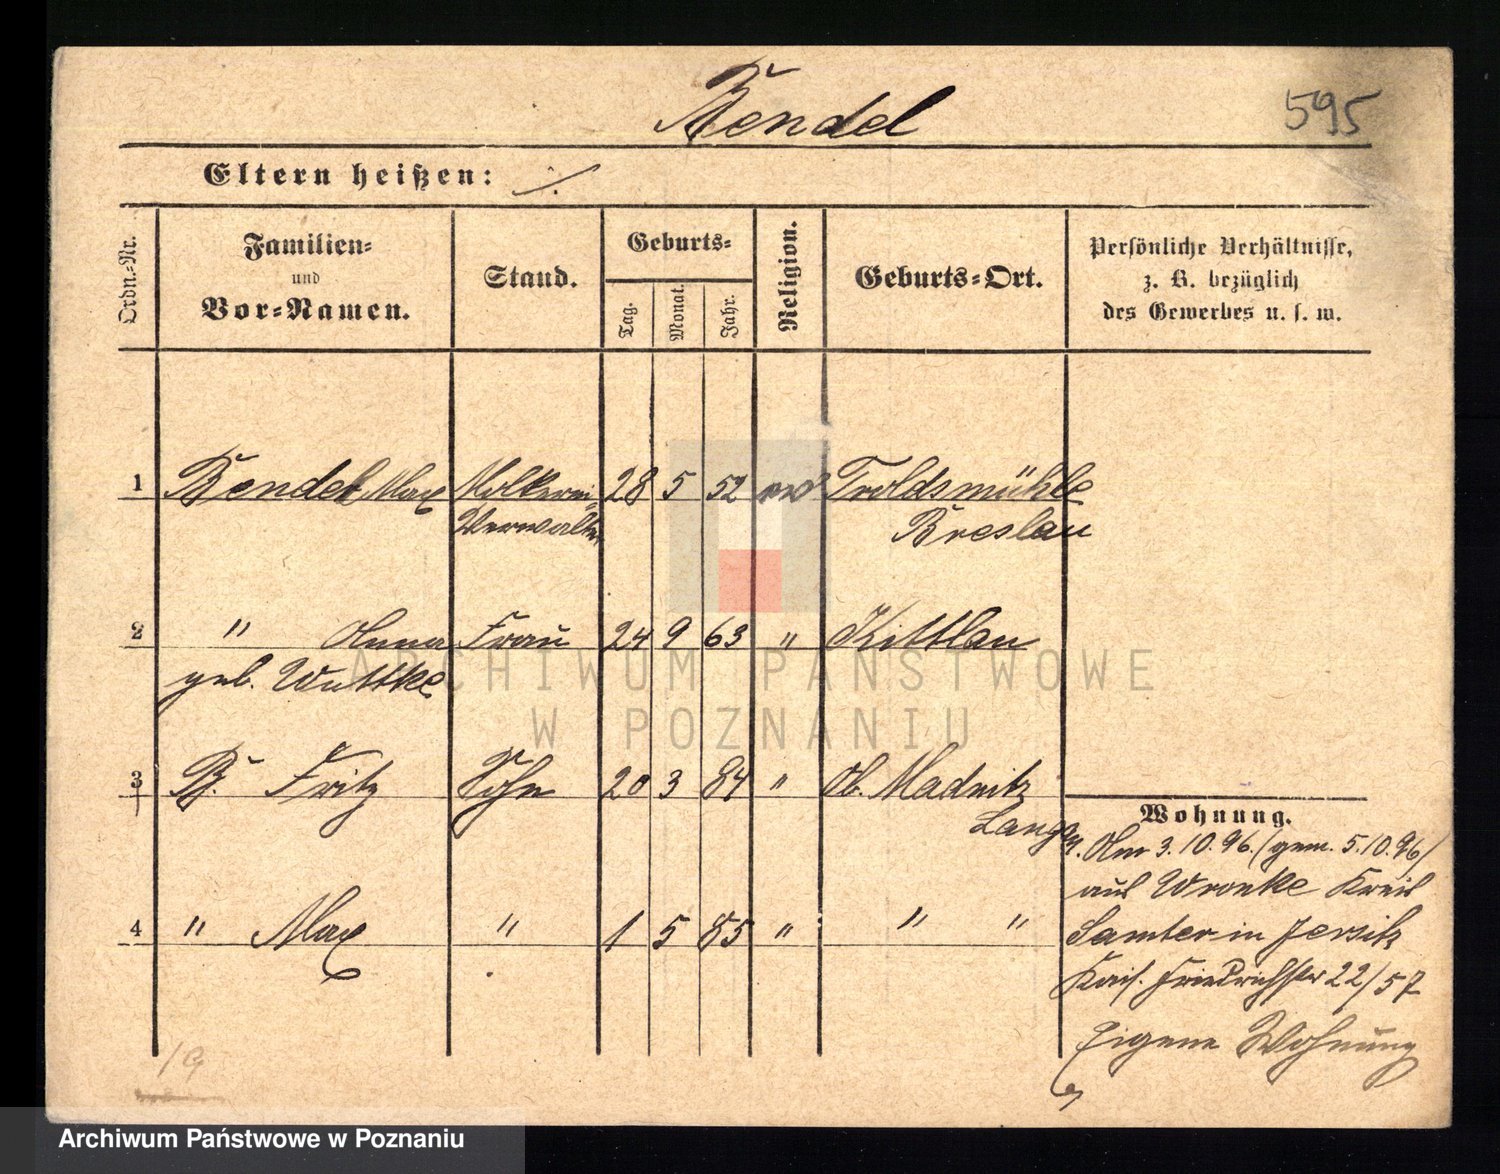 Bendel
595
Eltern heißen: ./.
Ordn.-Nr.
Familien- und Vor-Namen.
Stand.
Geburts-
Tag.
Monat.
Jahr.
Religion.
Geburts-Ort.
Persönliche Verhältnisse,
z. B. bezüglich
des Gewerbes u. s. w.
1 Bendel, Max Molkerei- 28 5 52 ev Troldsmühle
Verwalter Breslau
2 " Anna Frau 24 9 63 " Kittlau
geb. Wuttke
3 B. Fritz Sohn 20 3 84 " Ob. Madnitz
4 " Max " 1 5 85 " " "
Wohnung.
Am 3.10.96. (gem. 5.10.96)
aus Wronke Kreis
Samter in Jersitz
Kais. Friedrichstr 22/57
Eigene Wohnung
ARCHIWUM PAŃSTWOWE
W POZNANIU
Archiwum Państwowe w Poznaniu